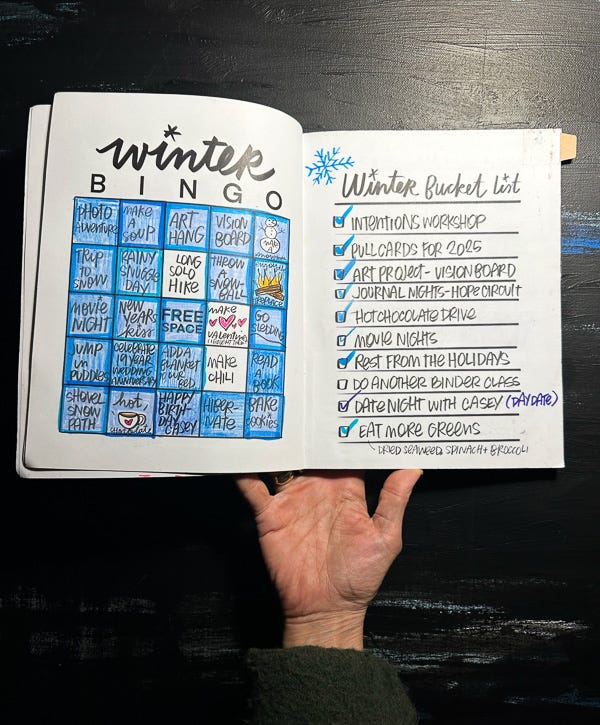 winter
BINGO
PHOTO ADVENTURE
MAKE A SOUP
ART HANG
VISION BOARD
MAKE A
TRIP TO SNOW
RAINY SNUGGLE DAY
LONG SOLO HIKE
THROW A SNOW-BALL
FIREPLACE
MOVIE NIGHT
NEW YEARS KISS
FREE SPACE
MAKE VALENTINES
GO SLEDDING
JUMP IN PUDDLES
CELEBRATE 19 YEAR WEDDING ANNIVERSARY
ADD A BLANKET TO OUR BED
MAKE CHILI
READ A BOOK
SHOVEL SNOW PATH
hot,
HAPPY BIRTHDAY CASEY
HIBERNATE
BAKE COOKIES
Winter Bucket List
INTENTIONS WORKSHOP
PULL CARDS FOR 2025
ART PROJECT - VISION BOARD
JOURNAL NIGHTS - HOPE CIRCUIT
HOT CHOCOLATE DRIVE
MOVIE NIGHTS
REST FROM THE HOLIDAYS
DO ANOTHER BINDER CLASS
DATE NIGHT WITH CASEY (DAY DATE)
EAT MORE GREENS
DRIED SEAWEED, SPINACH + BROCCOLI